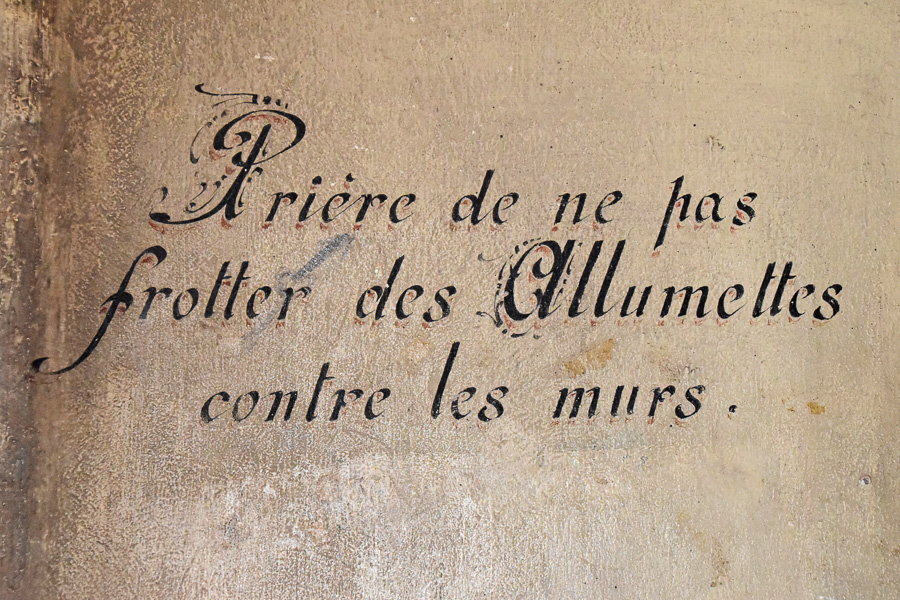 Prière de ne pas
frotter des Allumettes
contre les murs.